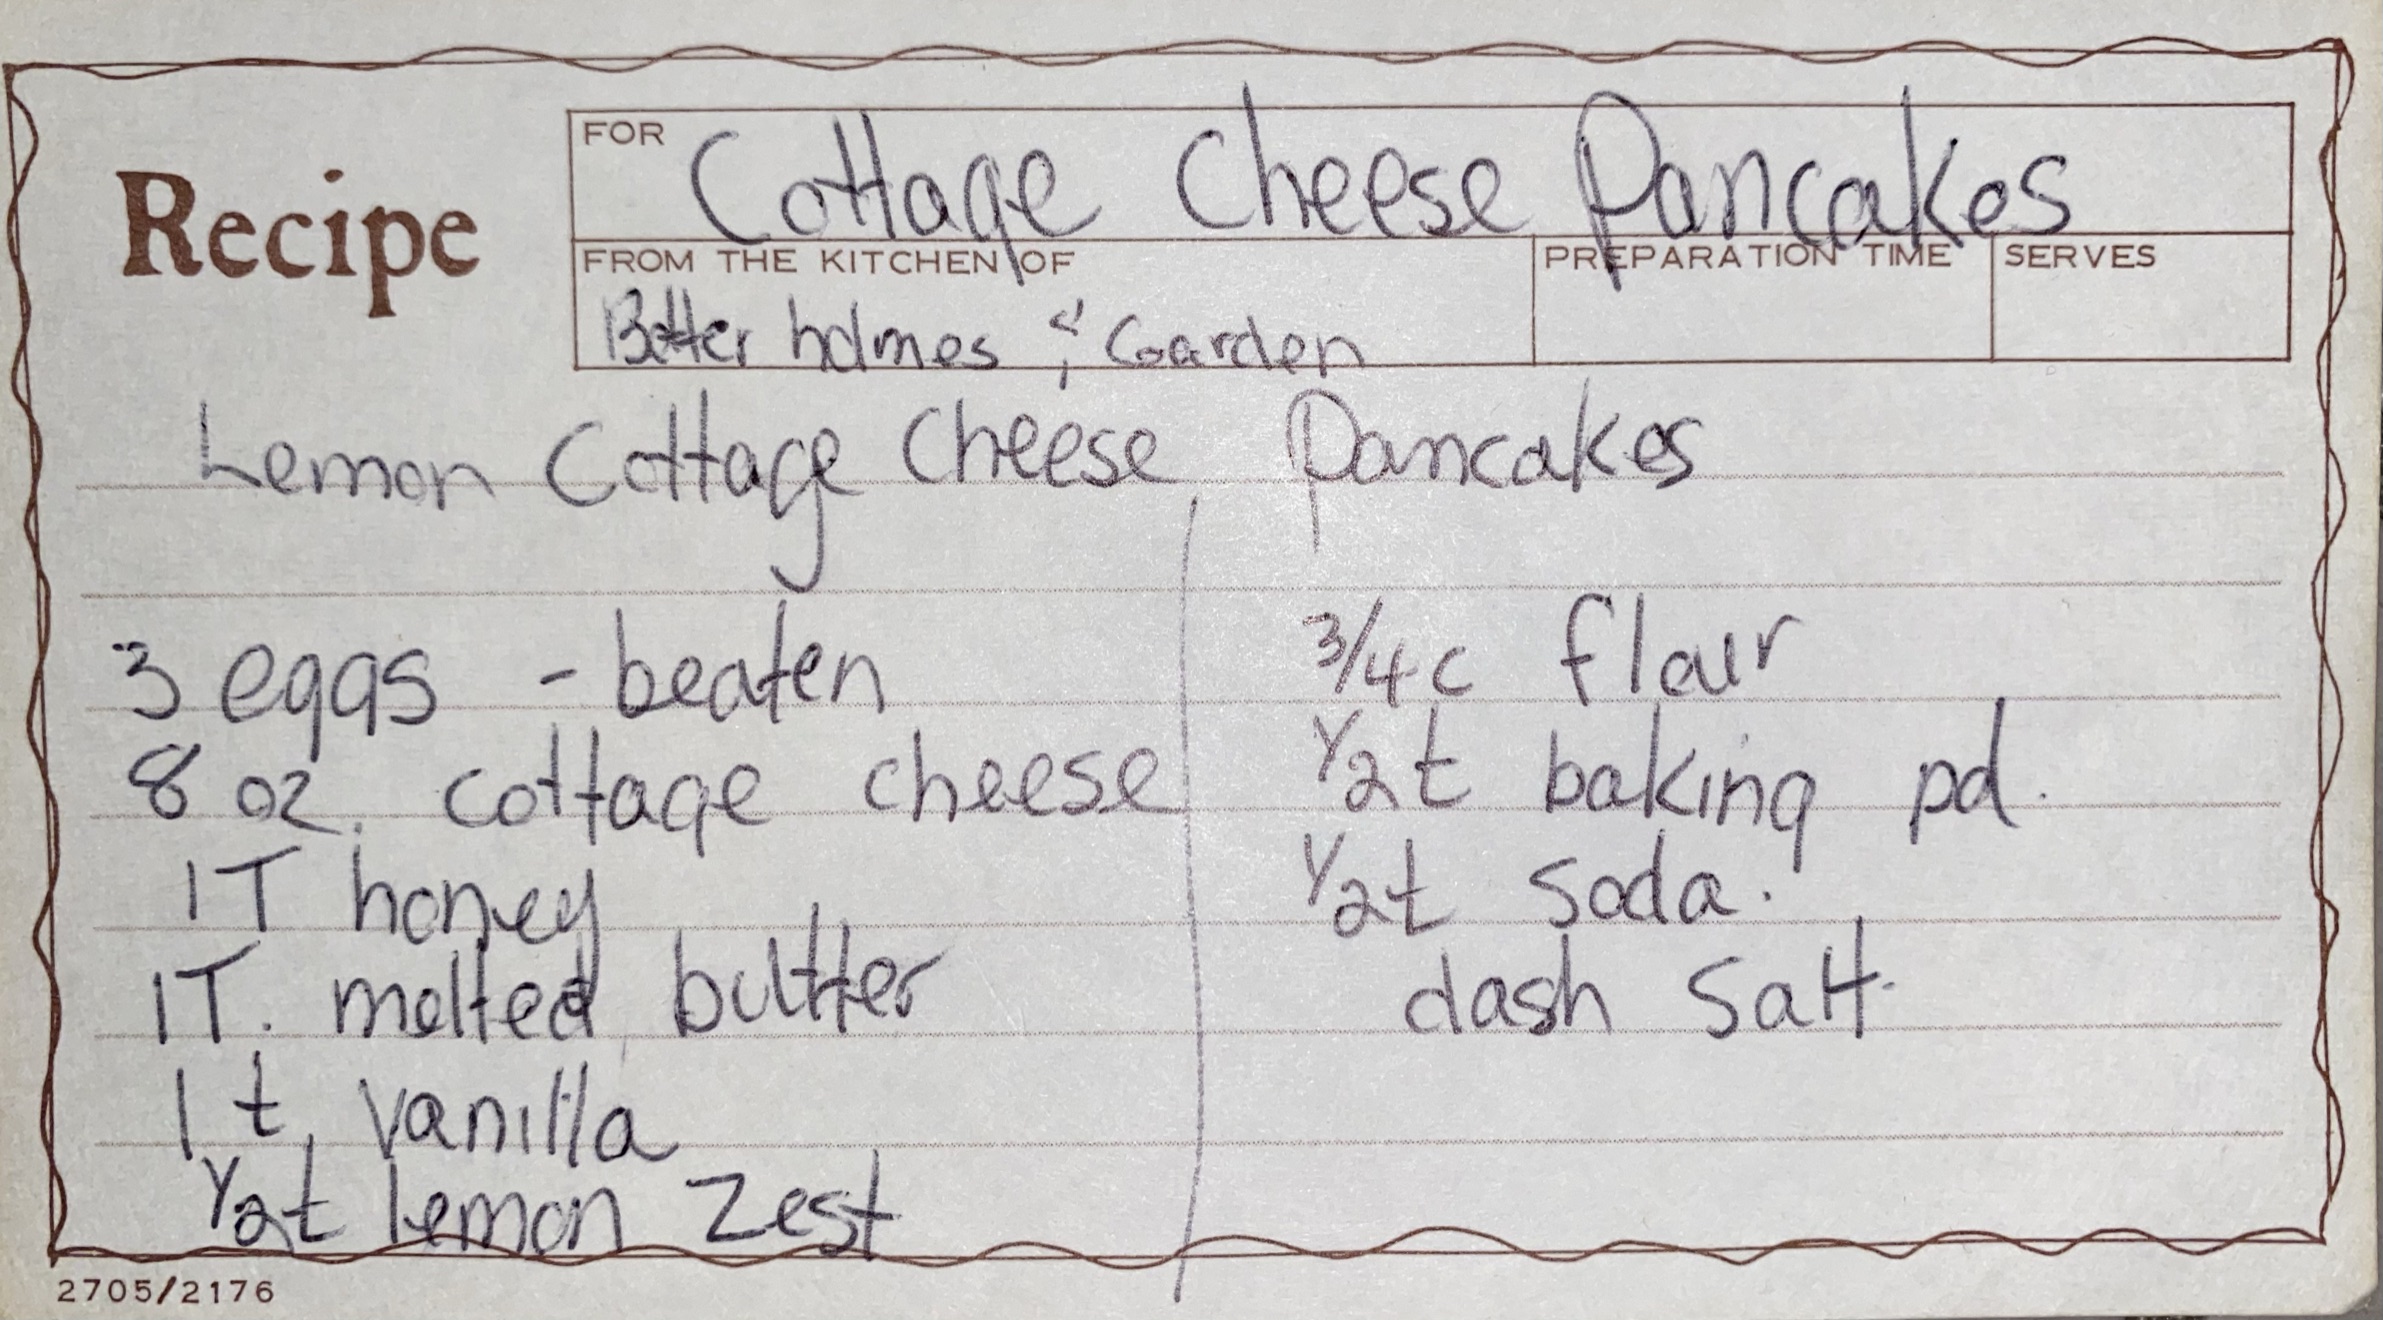 Recipe
FOR Cottage Cheese Pancakes
FROM THE KITCHEN OF
PREPARATION TIME
SERVES
Better holmes & Garden
Lemon Cottage Cheese Pancakes
3 eggs - beaten
8 oz. cottage cheese
1T honey
1T. melted butter
1 t. vanilla
1/2t lemon zest
3/4c flour
1/2t baking pd.
1/2t soda.
dash salt.
2705/2176